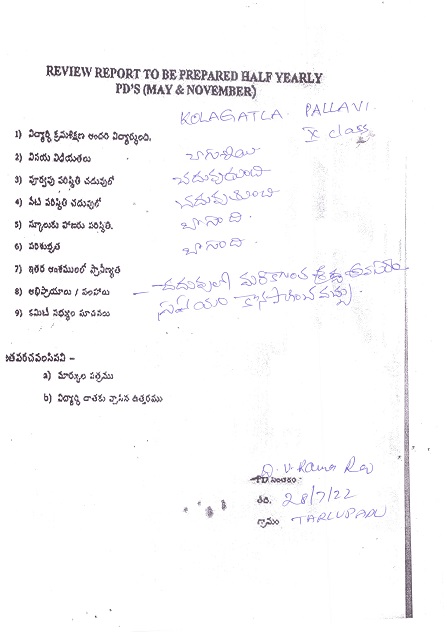 REVIEW REPORT TO BE PREPARED HALF YEARLY
PD'S (MAY & NOVEMBER)
KOLAGATLA PALLAVI.
IX class
1) విద్యార్థి క్రమశిక్షణ అందరి విద్యార్థులది.
2) వినయ విధేయతలు
3) పూర్వపు పరిస్థితి చదువులో చదువుతుంది
4) నేటి పరిస్థితి చదువులో చదువుతుంది
5) స్కూలుకు హాజరు పరిస్థితి. బాగుంది.
6) పరిశుభ్రత బాగుంది.
7) ఇతర అంశములలో ప్రావీణ్యత
8) అభిప్రాయాలు / సలహాలు – చదువులో మరికొంత శ్రద్ధ అవసరం
సహాయం కొనసాగించవచ్చు.
9) కమిటీ సభ్యుల సూచనలు
జతపరచవలసినవి –
a) మార్కుల పత్రము
b) విద్యార్థి దాతకు వ్రాసిన ఉత్తరము
V. Rama Rao
PD సంతకం :
తేది. 28/7/22
గ్రామం TARLUPADU